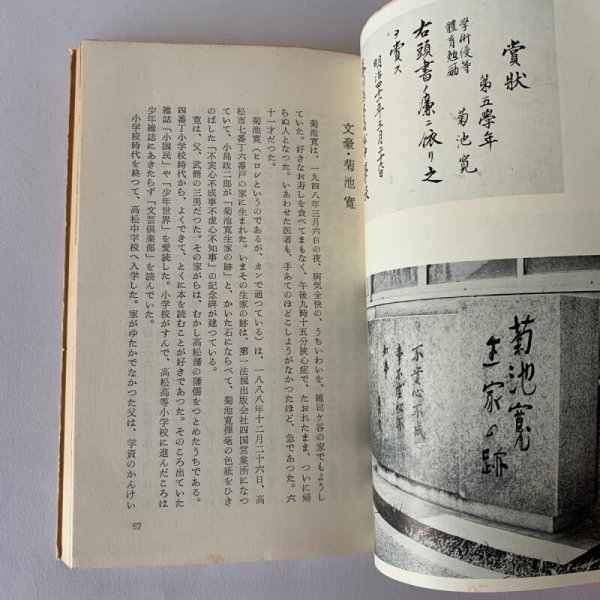 文豪・菊池寛
菊池寛は、一九四八年三月六日の夜、病気全快の、うちいわいを、雑司ケ谷の家でもようし
ていた。好きなお寿しを食べてまもなく、午後九時十五分狭心症で、たおれたまま、ついに帰
らぬ人となつた。いあわせた医者も、手あてのほどこしようがなかつたほど、急であつた。六
十一才だつた。
菊池寛（ヒロシというのであるが、カンで通つている）は、一八八八年十二月二十六日、高
松市七番丁六番戸の家に生まれた。いまその生家の跡は、第一法規出版会社四国営業所になつ
ていて、小島政二郎が「菊池寛生家の跡」と、かいた石にならべて、菊池寛揮毫の色紙をひき
のばした「不実心不成事不虚心不知事」の記念碑が建つている。
寛は、父、武脩の三男だつた。その家がらは、むかし高松藩の藩儒をつとめたうちである。
四番丁小学校時代から、よくできて、とくに本を読むことが好きであつた。そのころ出ていた
雑誌「小国民」や「少年世界」を愛読した。小学校がすんで、高松高等小学校に進んだころは
少年雑誌にあきたらず「文芸倶楽部」を読んでいた。
小学校時代を終つて、高松中学校へ入学した。家がゆたかでなかつた父は、学資のかんけい
57
賞状
第五學年
菊池寛
學術優等
體育勉励
右頭書ノ廉ニ依リ之
ヲ賞ス
明治四十一年三月二十六日
菊池寛
生家の跡
不実心不成
事不虚心不
知事